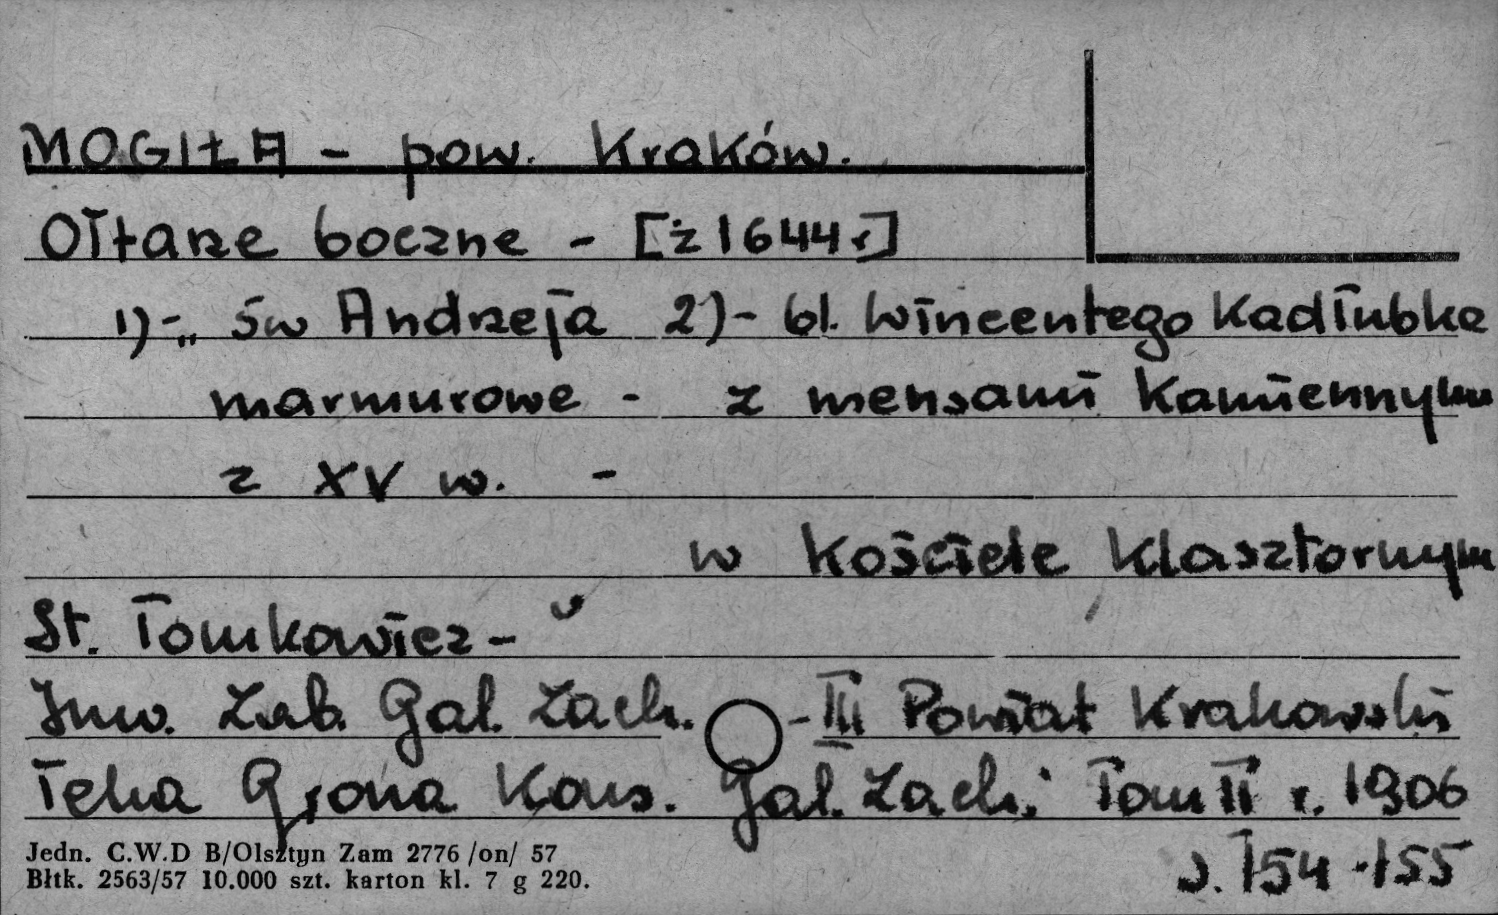 MOGIŁA - pow. Kraków.
Ołtarze boczne - [z 1644 r]
1) - „ św Andrzeja 2) - bł. Wincentego Kadłubka
marmurowe - z mensami kamiennymi
z XV w. -
w Kościele klasztornym
St. Tomkowicz -
Inw. Zab. Gal. Zach. - III Powiat Krakowski
Teka Grona Kons. Gal. Zach. Tom II r. 1906
s. 154 - 155
Jedn. C.W.D B/Olsztyn Zam 2776 /on/ 57
Błtk. 2563/57 10.000 szt. karton kl. 7 g 220.